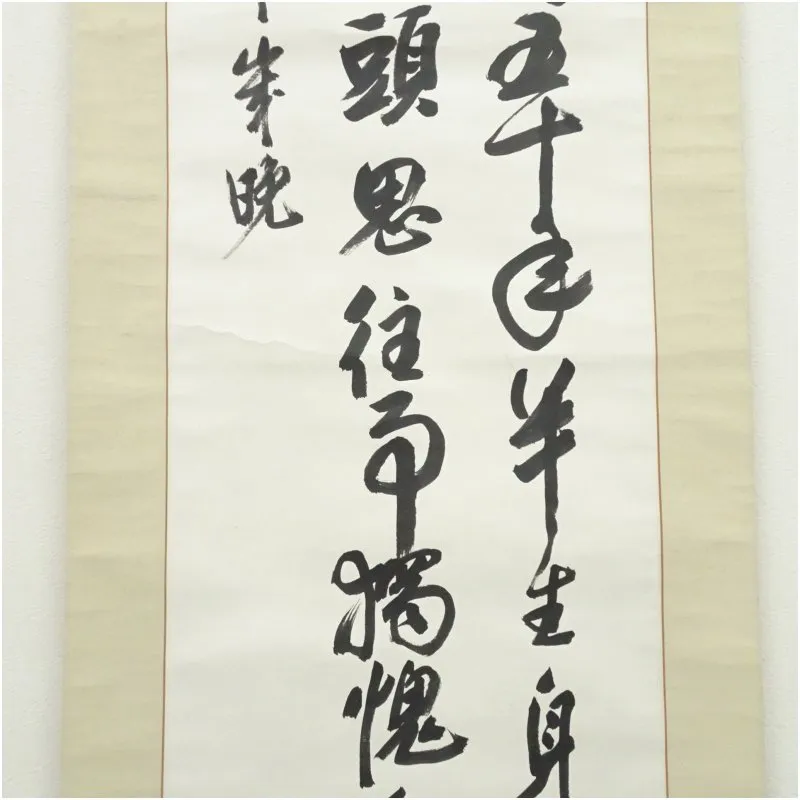 五十年半生身
頭思往事獨愧
歳晩